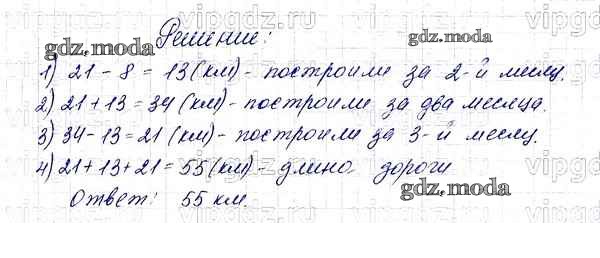 Решение:
gdz.moda gdz.moda
1) 21 - 8 = 13 (км) - построили за 2-й месяц.
2) 21 + 13 = 34 (км) - построили за два месяца.
3) 34 - 13 = 21 (км) - построили за 3-й месяц.
4) 21 + 13 + 21 = 55 (км) - длина дороги
gdz.moda
Ответ: 55 км.